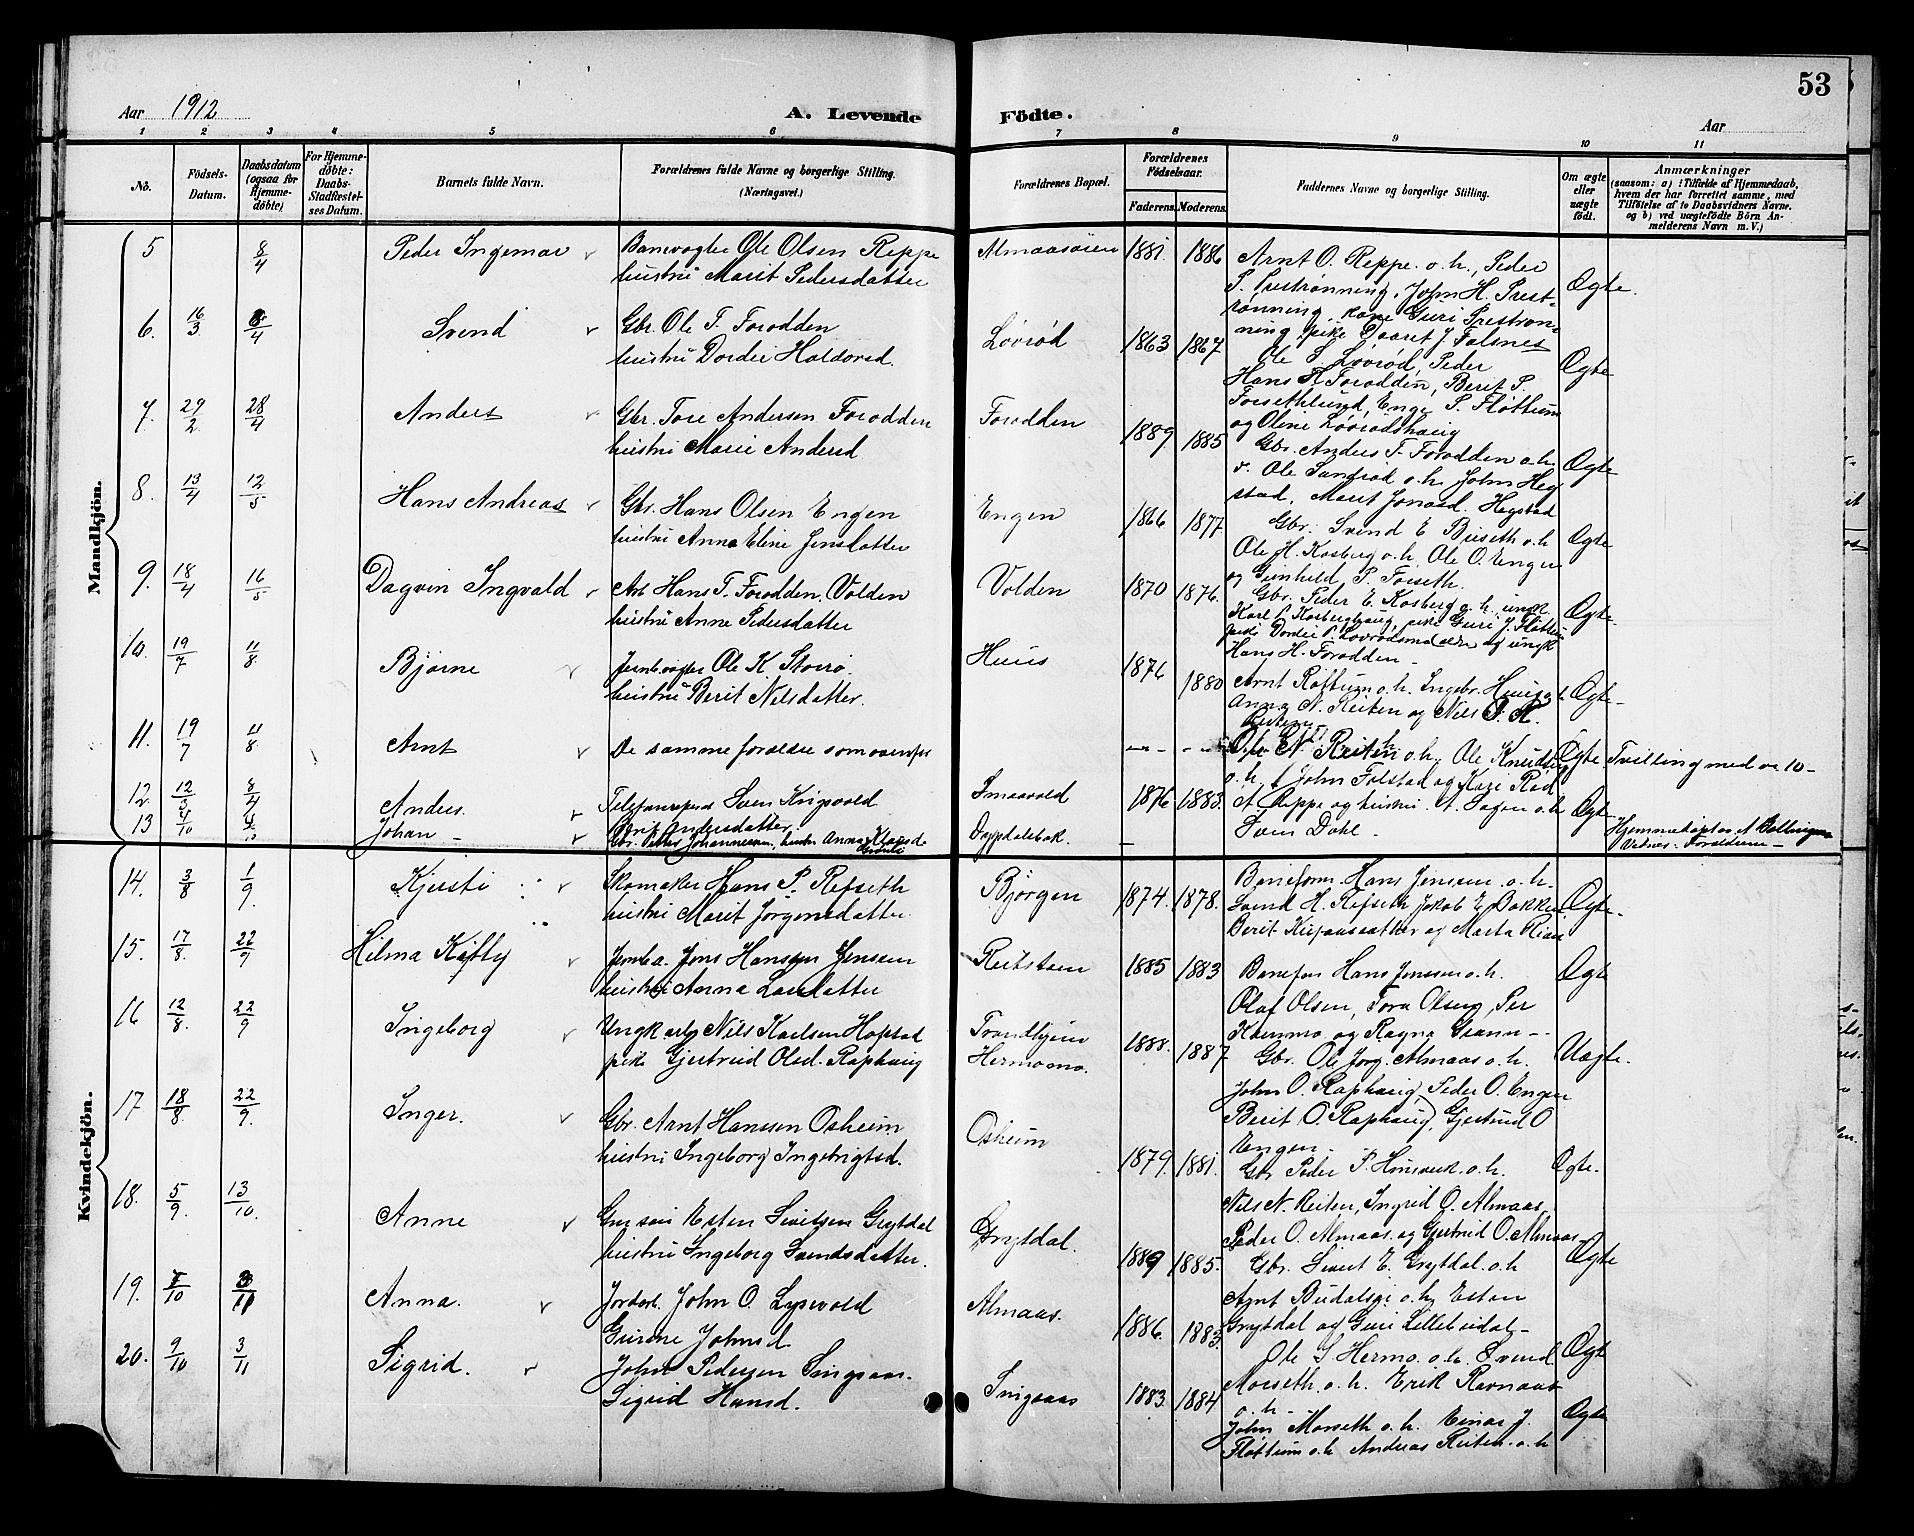 53
Aar 1912
A. Levende Födte.
Aar
1 2 3 4 5 6 7 8 9 10 11
No.
Födsels-Datum.
Daabsdatum (ogsaa for Hjemmedöbte)
For Hjemmedöbte: Daabs-Stadfæstelses Datum.
Barnets fulde Navn.
Forældrenes fulde Navne og borgerlige Stilling. (Næringsvei.)
Forældrenes Bopæl.
Forældrenes Födselsaar.
Faderens. Moderens.
Faddernes Navne og borgerlige Stilling.
Om ægte eller uægte födt.
Anmærkninger
(saasom: a) i Tilfælde af Hjemmedaab, hvem der har forrettet samme, med Tilföielse af to Daabsvidners Navne. og b) ved uægtefödte Börn Anmelderens Navn m. V.)
Mandkjön.
5 8/4 Peder Ingemar Banevogter Ole Olsen Reppe Almaasøien 1881. 1886 Arnt O. Reppe o.h., Peder
hustru Marit Pedersdatter P. Prestrønning, John H. Prest- Ægte.
rønning, kone Guri Prestrøn-
6. 16/3 8/4 Svend Gbr. Ole T. Forodden Løvrød 1863 1867 ning, pike Daaret J. Folsnes
hustru Dordei Haldorsd. Ole S. Løvrød, Peder Ægte
Hans H. Forodden, Berit P.
7. 29/2 28/4 Anders Gbr. Tore Andersen Forodden Forodden 1889 1885 Forsethlund, Enge P. Fløttum
hustru Marie Andersd og Olene Løvrødshaug
Gbr. Anders T. Forodden o.h. Ægte
8. 13/4 12/5 Hans Andreas Gbr. Hans Olsen Engen Engen 1866 1877. Ole Sandrød o.h. John Heg
hustru Anna Eline Jensdatter stad, Marit Jonasd. Hegstad
Gbr. Svend E. Buseth o.h Ægte
Ole H. Kosberg o.h. Ole O. Engen
9. 18/4 16/5 Dagvin Ingvald Arb Hans T. Forodden. Volden Volden 1870 1876. og Gunhild P. Forseth.
hustru Anne Pedersdatter Gbr. Peder E. Kosberg o.h. ungk. Ægte.
Karl P. Kosberghaug, pike Guri J. Fløttum
10. 19/7 11/8 Bjarne Jernb.vogter Ole K. Storrø Huus 1876 1880 Hans H. Forodden
hustru Berit Nilsdatter. Arnt Røttum o.h. Ingebr. Huus o.h. Ægte.
Anna N. Reiten og Nils
11. 19/7 11/8 Arnt De samme foreldre som ovenfor Reiten o.h. Ole Knudsen Ægte Tvilling med no 10
o.h. John Folstad og Kari Rød
12 12/3 8/4 Anders. Sven Kingsvold Smaavold 1876 1883. A. Reppe og hustru A. Sagen o.h. Ægte
13 4/10 Johan Andersdatter. Drypdalsbak. Sven Dahl
Kvindekjön.
14. 3/8 1/9. Kjersti Skomaker Hans P. Refseth Bjørgen 1874. 1878. Baneform. Hans Jenssen o.h.
hustru Marit Jørgensdatter. Svend H. Refseth Jakob E. Bakken Ægte.
Berit og Marta Rian
15. 17/8. 22/9 Hilma Kitty Jernb.a. Jens Hansen Jenssen Reitstøen 1885 1883 Banefor. Hans Jenssen o.h. Ægte
hustru Anna Larsdatter Olaf Olsen, Tora Olsen, Per
16 12/8. 22/9 Ingeborg Ungkarl Nils Karlsen Hofstad Trondhjem 1888. 1887 Kammo og Ragna Grann
pike Gjertrud Olsd. Raphaug Hermomo. Gbr. Ole Jørg. Almaas o.h. Uægte.
John O. Raphaug, Peder O. Engen
17 18/8. 22/9. Inger. Gbr. Arnt Hanssen Osheim Osheim 1879. 1881. Berit O. Raphaug, Gjertrud O
hustru Ingeborg Ingebrigtsd. Engen.
Gbr Peder P. o.h. Ægte.
18. 5/9. 13/10. Anne Grd søn Esten Sivertsen Grytdal Grytdal. 1889 1885. Nils N. Reiten, Ingrid O. Almaas
hustru Ingeborg Svendsdatter. Peder O. Almaas og Gjertrud O. Almaas Ægte
Gbr. Sivert E. Grytdal o.h
19. 7/10 3/11 Anna. Jordarb. John O. Lysvold Almaas. 1886. 1883 Arnt Budalsgj. o.h. Esten
Gurine Johnsd Grytdal og Guri Lillebudal
Ole S. Hermo. o.h. Svend Ægte
20. 9/10 3/11 Sigrid. John Pedersen Singsaas. Singsaas 1883. 1884 Morseth o.h. Erik Ravnaas
Sigrid Hansd. o.h.
John Morseth o.h. Einar J. Ægte
Fløttum o.h Andreas Reiten o.h